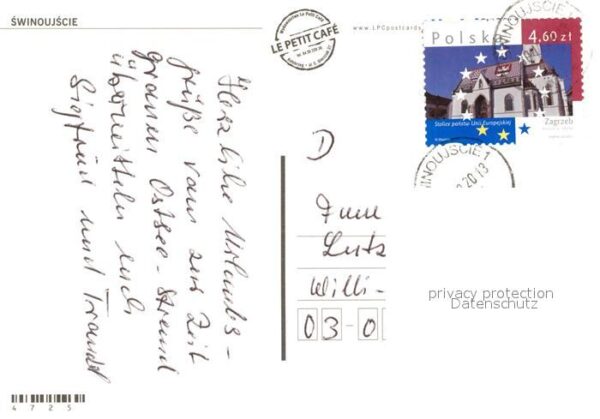 ŚWINOUJŚCIE
LE PETIT CAFÉ
www.LPCpostcards
Polska
4,60 zł
Stolice państw Unii Europejskiej
Zagrzeb
WINOUJŚCIE 1
2013
Herzliche Urlaubs-
grüße vom zur Zeit
grauen Ostsee-Strand
übermitteln euch
Siegfried und Traudel
D
Fam
Lutz
Willi-
03-0
privacy protection
Datenschutz
4725